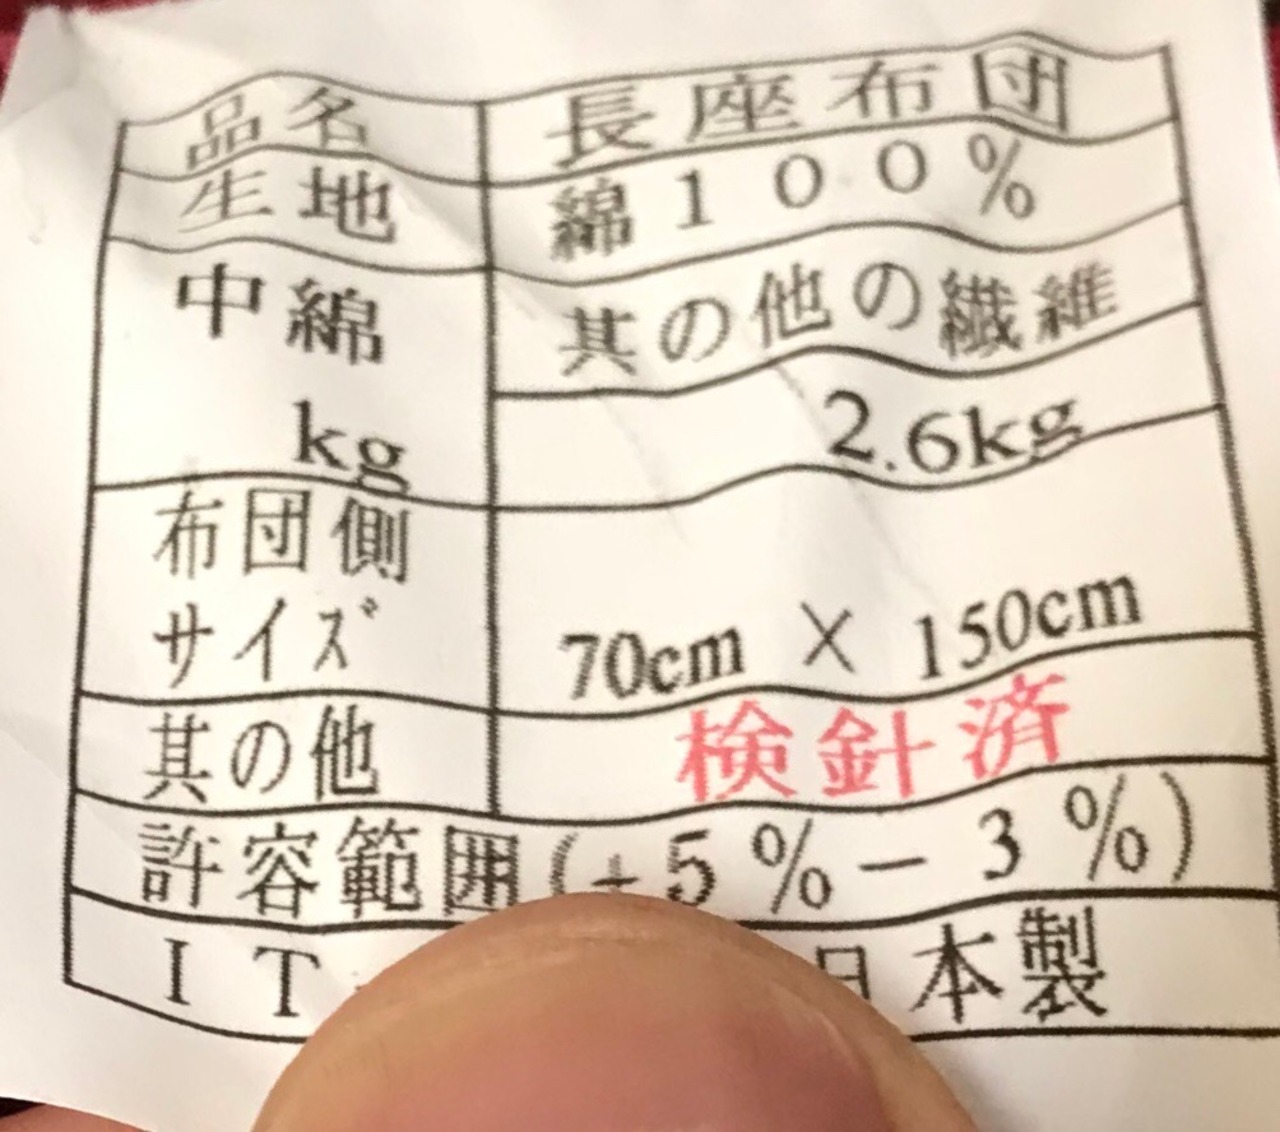 品名 長座布団
生地 綿100%
中綿 其の他の繊維
kg 2.6kg
布団側
サイズ 70cm × 150cm
其の他 検針済
許容範囲(+5%-3%)
IT 日本製